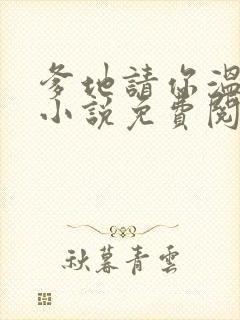 爹地請你溫
小說免費閱
秋暮青雲